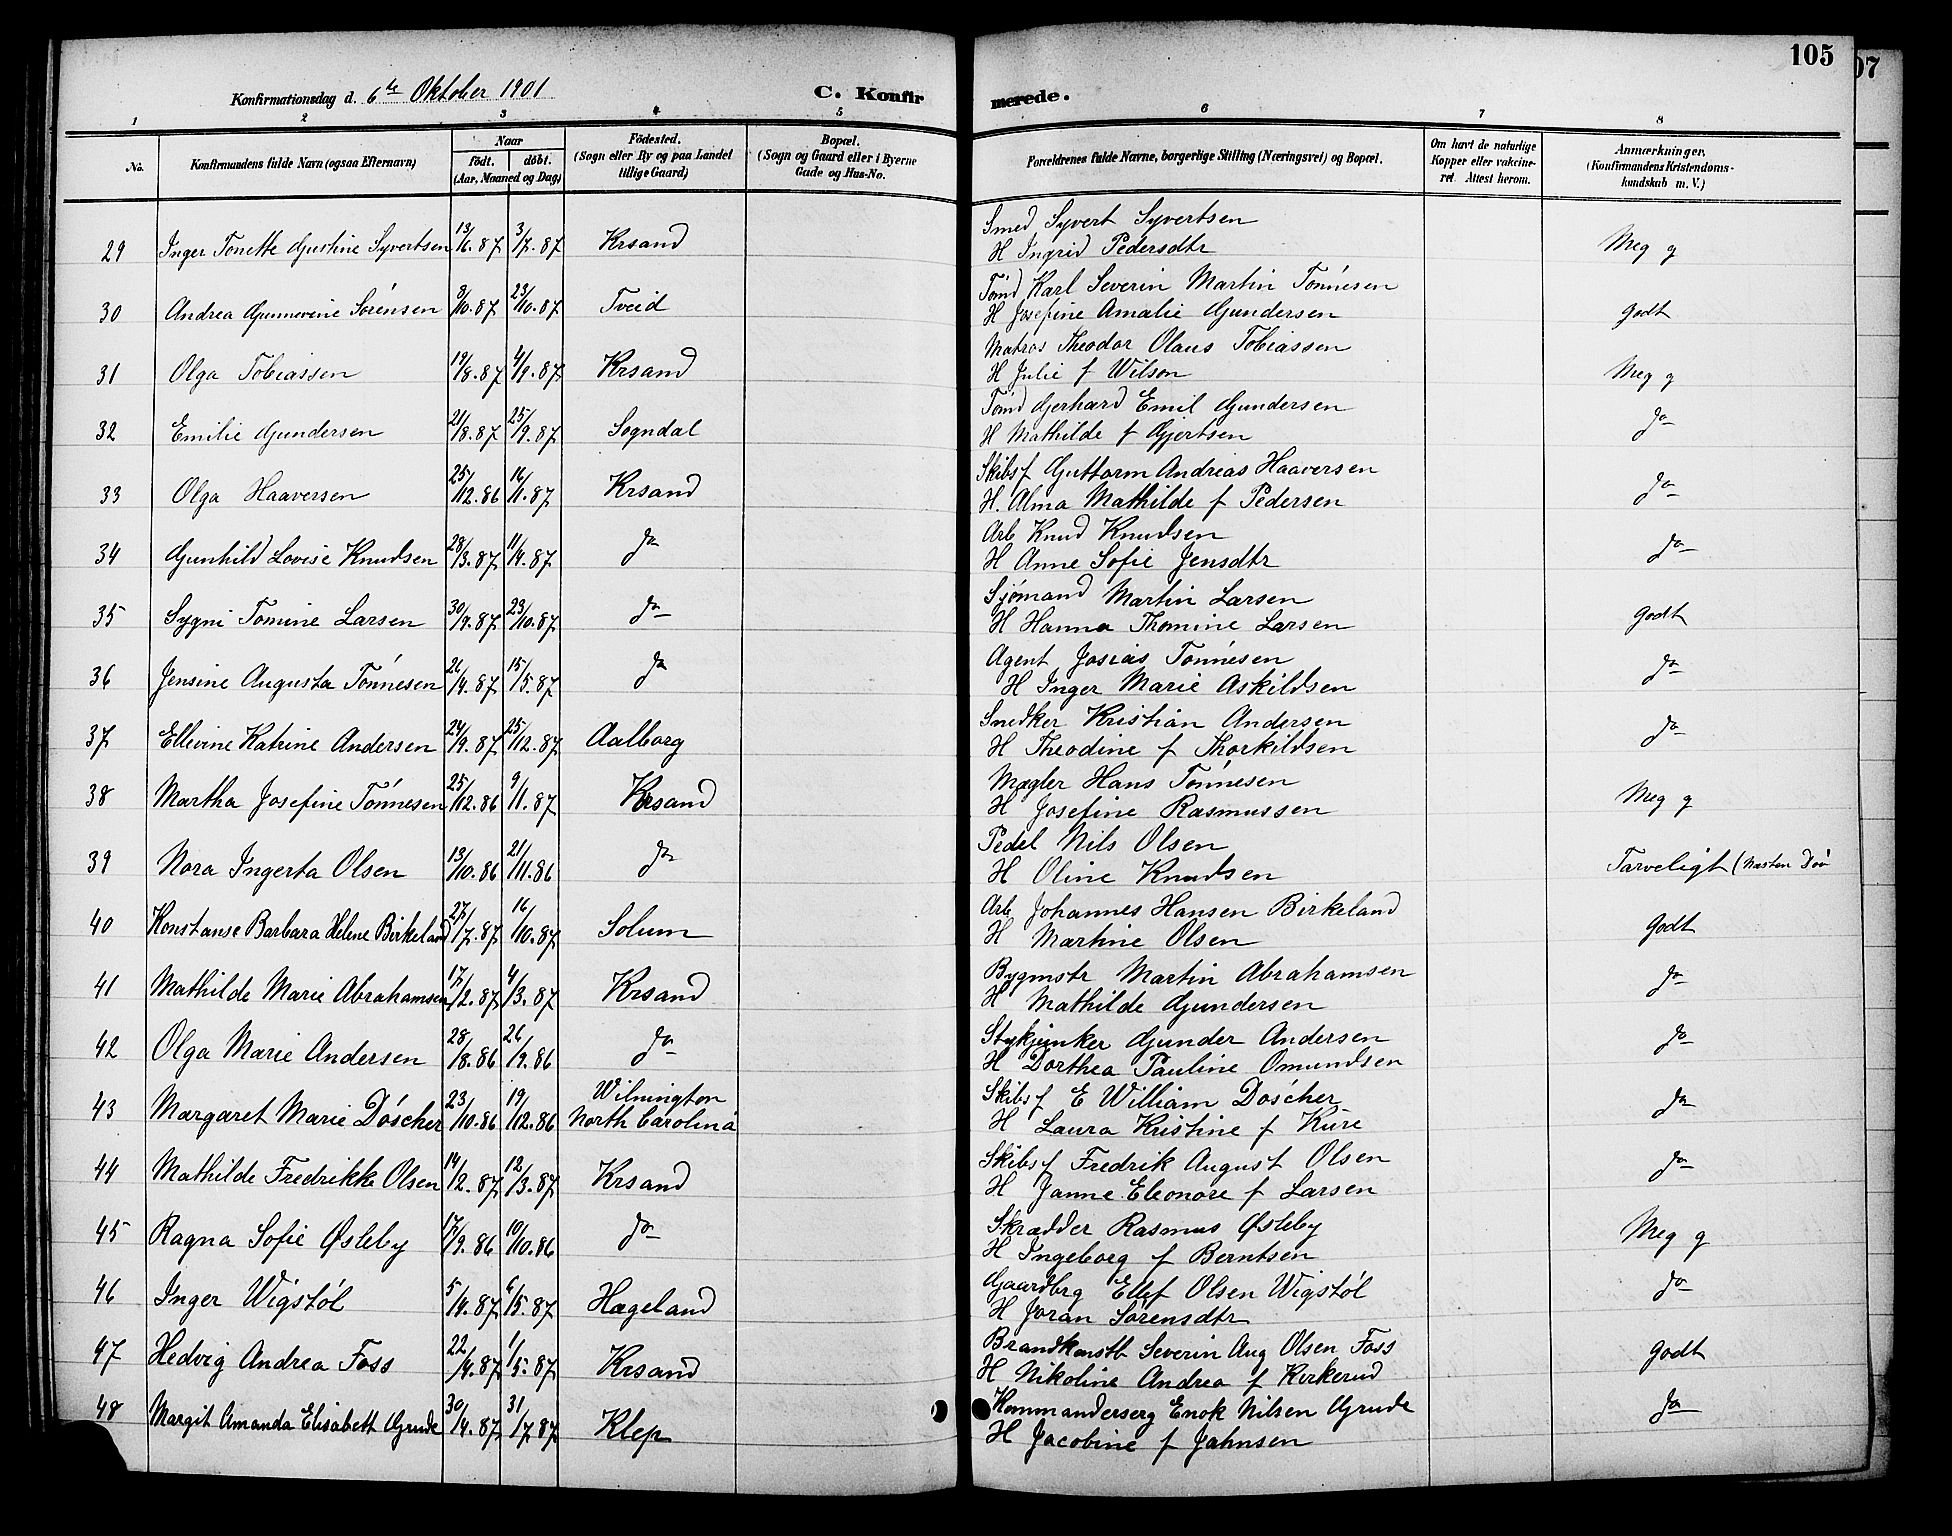 105
07
Konfirmationsdag d. 6te Oktober 1901
C. Konfirmerede.
1 2 3 4 5 6 7 8
No.
Konfirmandens fulde Navn (ogsaa Efternavn)
Naar
födt. döbt.
(Aar, Maaned og Dag)
Födested.
(Sogn eller By og paa Landet
tillige Gaard)
Bopæl.
(Sogn og Gaard eller i Byerne
Gade og Hus-No.
Forældrenes fulde Navne, borgerlige Stilling (Næringsvei) og Bopæl.
Om havt de naturlige
Kopper eller vakcine-
ret. Attest herom.
Anmærkninger.
(Konfirmandens Kristendoms-
kundskab m. V.)
29 Inger Tonette Gustine Syvertsen 13/6.87 3/7.87 Krsand Smed Syvert Syvertsen
H Ingrid Pedersdtr Meg g
30 Andrea Gunnevine Sørensen 8/10.87 23/10.87 Tveid Tømd Karl Severin Martin Tønnesen
H Josefine Amalie Gundersen godt
31 Olga Tobiassen 19/8.87 4/9.87 Krsand Matros Theodor Olaus Tobiassen
H Julie f Wilson Meg g
32 Emilie Gundersen 21/8.87 25/9.87 Sogndal Tømd Gerhard Emil Gundersen
H Mathilde f Gjertsen do
33 Olga Haaversen 25/12.86 16/1.87 Krsand Skibsf Guttorm Andreas Haaversen
H. Alma Mathilde f Pedersen do
34 Gunhild Lovise Knudsen 28/3.87 11/4.87 do Arb Knud Knudsen
H Anne Sofie Jensdtr do
35 Sygni Tomine Larsen 30/9.87 23/10.87 do Sjømand Martin Larsen
H Hanna Thomine Larsen godt
36 Jensine Augusta Tønnesen 26/4.87 15/5.87 do Agent Josias Tønnesen
H Inger Marie Askildsen do
37 Ellevine Katrine Andersen 24/9.87 25/12.87 Aalborg Snedker Kristian Andersen
H Theodine f Thorkildsen do
38 Martha Josefine Tønnesen 25/12.86 9/1.87 Krsand Mægler Hans Tønnesen
H Josefine Rasmussen Meg g
39 Nora Ingerta Olsen 13/10.86 21/11.86 do Pedel Nils Olsen
H Oline Knudsen Tarveligt (næsten Døv
40 Konstanse Barbara Helene Birkeland 27/7.87 16/10.87 Solum Arb Johannes Hansen Birkeland
H Martine Olsen godt
41 Mathilde Marie Abrahamsen 17/2.87 4/3.87 Krsand Bygmstr Martin Abrahamsen
H Mathilde Gundersen do
42 Olga Marie Andersen 28/8.86 26/9.86 do Stykjunker Gunder Andersen
H Dorthea Pauline Omundsen do
43 Margaret Marie Döscher 23/10.86 19/12.86 Wilmington
North Carolina Skibsf E William Döscher
H Laura Kristine f Kure do
44 Mathilde Fredrikke Olsen 14/2.87 12/3.87 Krsand Skibsf Fredrik August Olsen
H Janne Eleonore f Larsen do
45 Ragna Sofie Øsleby 17/9.86 10/10.86 do Skrædder Rasmus Øsleby
H Ingeborg f Berntsen Meg g
46 Inger Wigstøl 5/4.87 6/5.87 Hægeland Gaardbrg Ellef Olsen Wigstøl
H Joran Sørensdtr do
47 Hedvig Andrea Foss 22/4.87 1/5.87 Krsand Brandkonstb Severin Aug Olsen Foss
H Nikoline Andrea f Kirkerud godt
48 Margit Amanda Elisabett Grude 30/4.87 31/7.87 Klep Kommanderserg Enok Nilsen Grude
H Jacobine f Jahnsen do